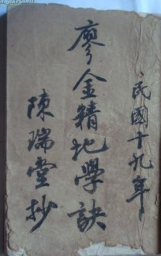 民國十九年
廖金精地學訣
陳瑞堂抄